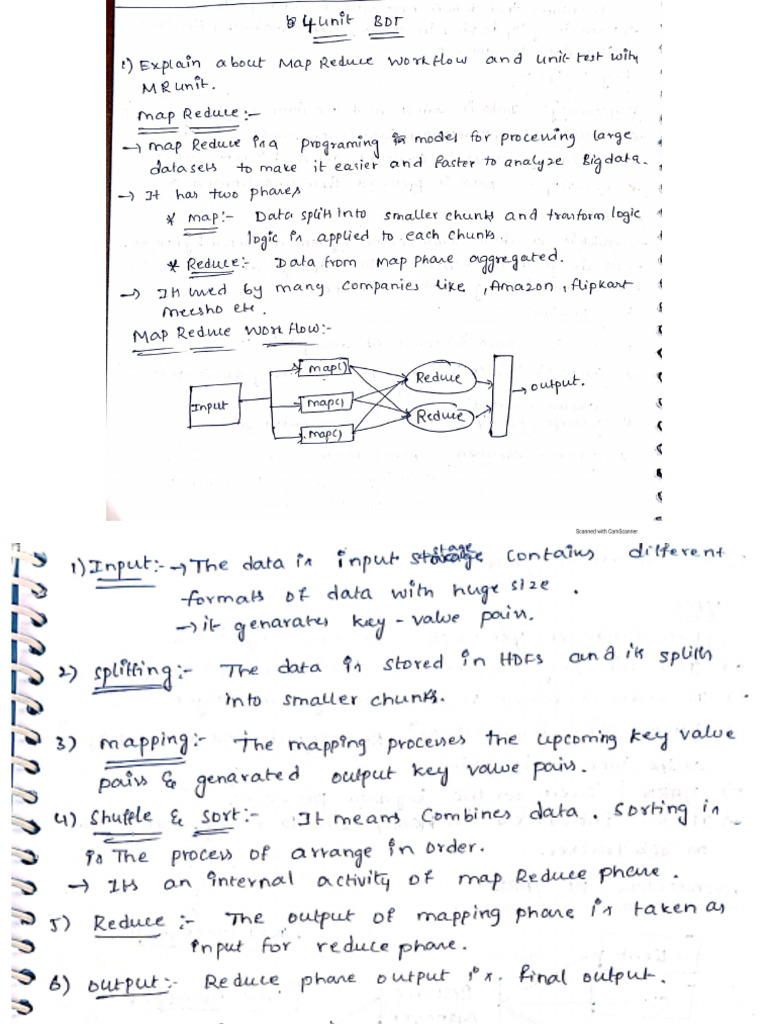 4 unit BDT
1) Explain about Map Reduce workflow and unit test with
MRunit.
Map Reduce:-
→ map Reduce is a programing model for processing large
datasets to make it easier and faster to analyze Bigdata.
→ It has two phases
* map:- Data split into smaller chunks and trasform logic
logic is applied to each chunks.
* Reduce:- Data from map phase aggregated.
→ It used by many companies like , Amazon , flipkart
meesho etc.
Map Reduce Workflow:-
Input
map()
map()
map()
Reduce
Reduce
→ output.
Scanned with CamScanner
1) Input:- → The data in input stage contains different
formats of data with huge size .
→ it genarates key - value pairs.
2) splitting:- The data is stored in HDFS and its splits
into smaller chunks.
3) mapping:- The mapping processes the upcoming key value
pairs & genarated output key value pairs.
4) Shuffle & sort:- It means combines data . sorting is
is The process of arrange in order.
→ Its an internal activity of map Reduce phase .
5) Reduce :- The output of mapping phase is taken as
input for reduce phase.
6) output:- Reduce phase output is. final output.